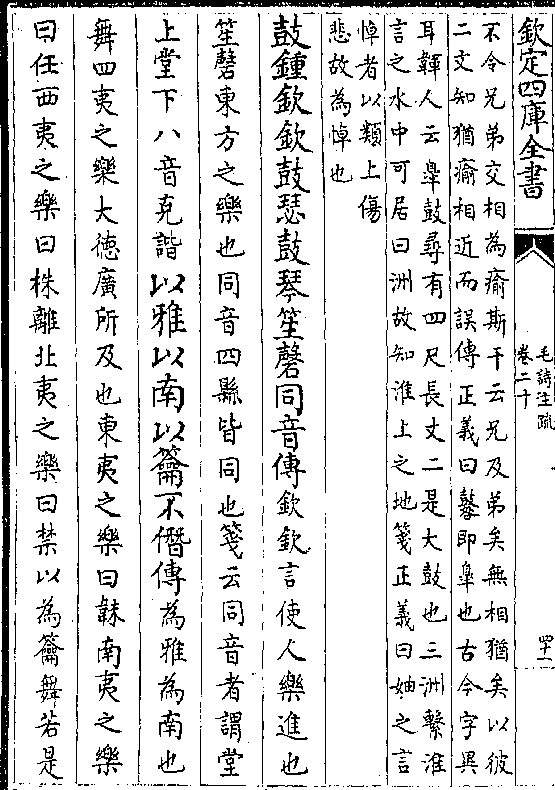 欽定四庫全書
毛詩注疏
卷二十
四十一
不令兄弟交相為瘉斯干云兄及弟矣無相猶矣以彼
二文知猶瘉相近而誤傳正義曰鼛即臯也古今字異
耳韗人云臯鼓尋有四尺長丈二是大鼓也三洲繫淮
言之水中可居曰洲故知淮上之地箋正義曰妯之言
悼者以類上傷
悲故為悼也
鼓鍾欽欽鼓瑟鼓琴笙磬同音傳欽欽言使人樂進也
笙磬東方之樂也同音四縣皆同也箋云同音者謂堂
上堂下八音克諧以雅以南以籥不僭傳為雅為南也
舞四夷之樂大德廣所及也東夷之樂曰韎南夷之樂
曰任西夷之樂曰株離北夷之樂曰禁以為籥舞若是